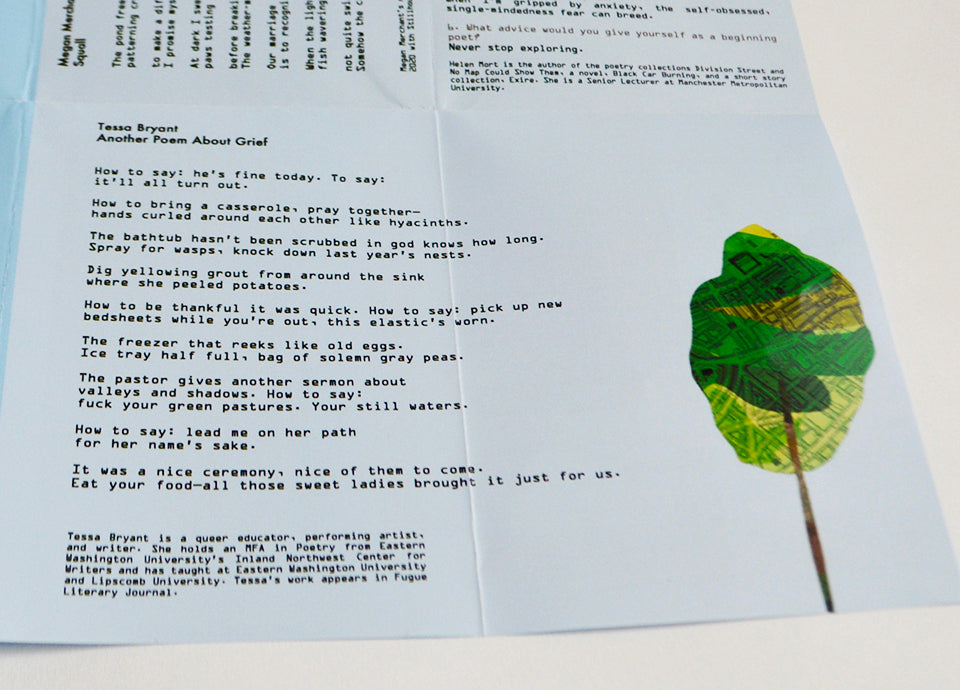 Megan Mercha
Squall
The pond free
patterning cr
to make a dif
I promise mys
At dark I swe
paws testing
before breaki
The weather-s
Our marriage
is to recogni
When the ligh
fish wavering
not quite swi
Somehow the c
Megan Merchant's
2020 with Stillho
when I'm gripped by anxiety, the self-obsessed,
single-mindedness fear can breed.
6. What advice would you give yourself as a beginning
poet?
Never stop exploring.
Helen Mort is the author of the poetry collections Division Street and
No Map Could Show Them, a novel, Black Car Burning, and a short story
collection, Exire. She is a Senior Lecturer at Manchester Metropolitan
University.
Tessa Bryant
Another Poem About Grief
How to say: he's fine today. To say:
it'll all turn out.
How to bring a casserole, pray together—
hands curled around each other like hyacinths.
The bathtub hasn't been scrubbed in god knows how long.
Spray for wasps, knock down last year's nests.
Dig yellowing grout from around the sink
where she peeled potatoes.
How to be thankful it was quick. How to say: pick up new
bedsheets while you're out, this elastic's worn.
The freezer that reeks like old eggs.
Ice tray half full, bag of solemn gray peas.
The pastor gives another sermon about
valleys and shadows. How to say:
fuck your green pastures. Your still waters.
How to say: lead me on her path
for her name's sake.
It was a nice ceremony, nice of them to come.
Eat your food—all those sweet ladies brought it just for us.
Tessa Bryant is a queer educator, performing artist,
and writer. She holds an MFA in Poetry from Eastern
Washington University's Inland Northwest Center for
Writers and has taught at Eastern Washington University
and Lipscomb University. Tessa's work appears in Fugue
Literary Journal.